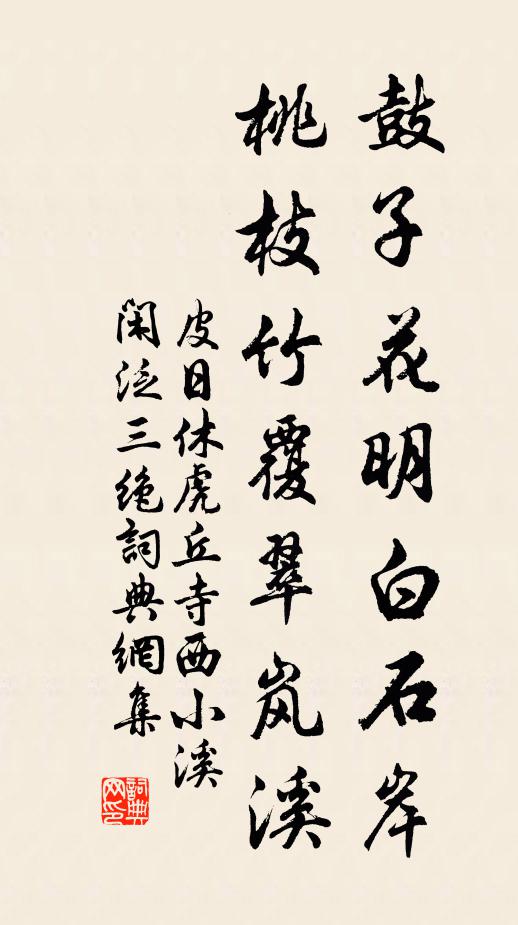 鼓子花明白石岸
桃枝竹覆翠岚溪
皮日休虎丘寺西小溪
闲泛三绝詞典網集
詞典
网印